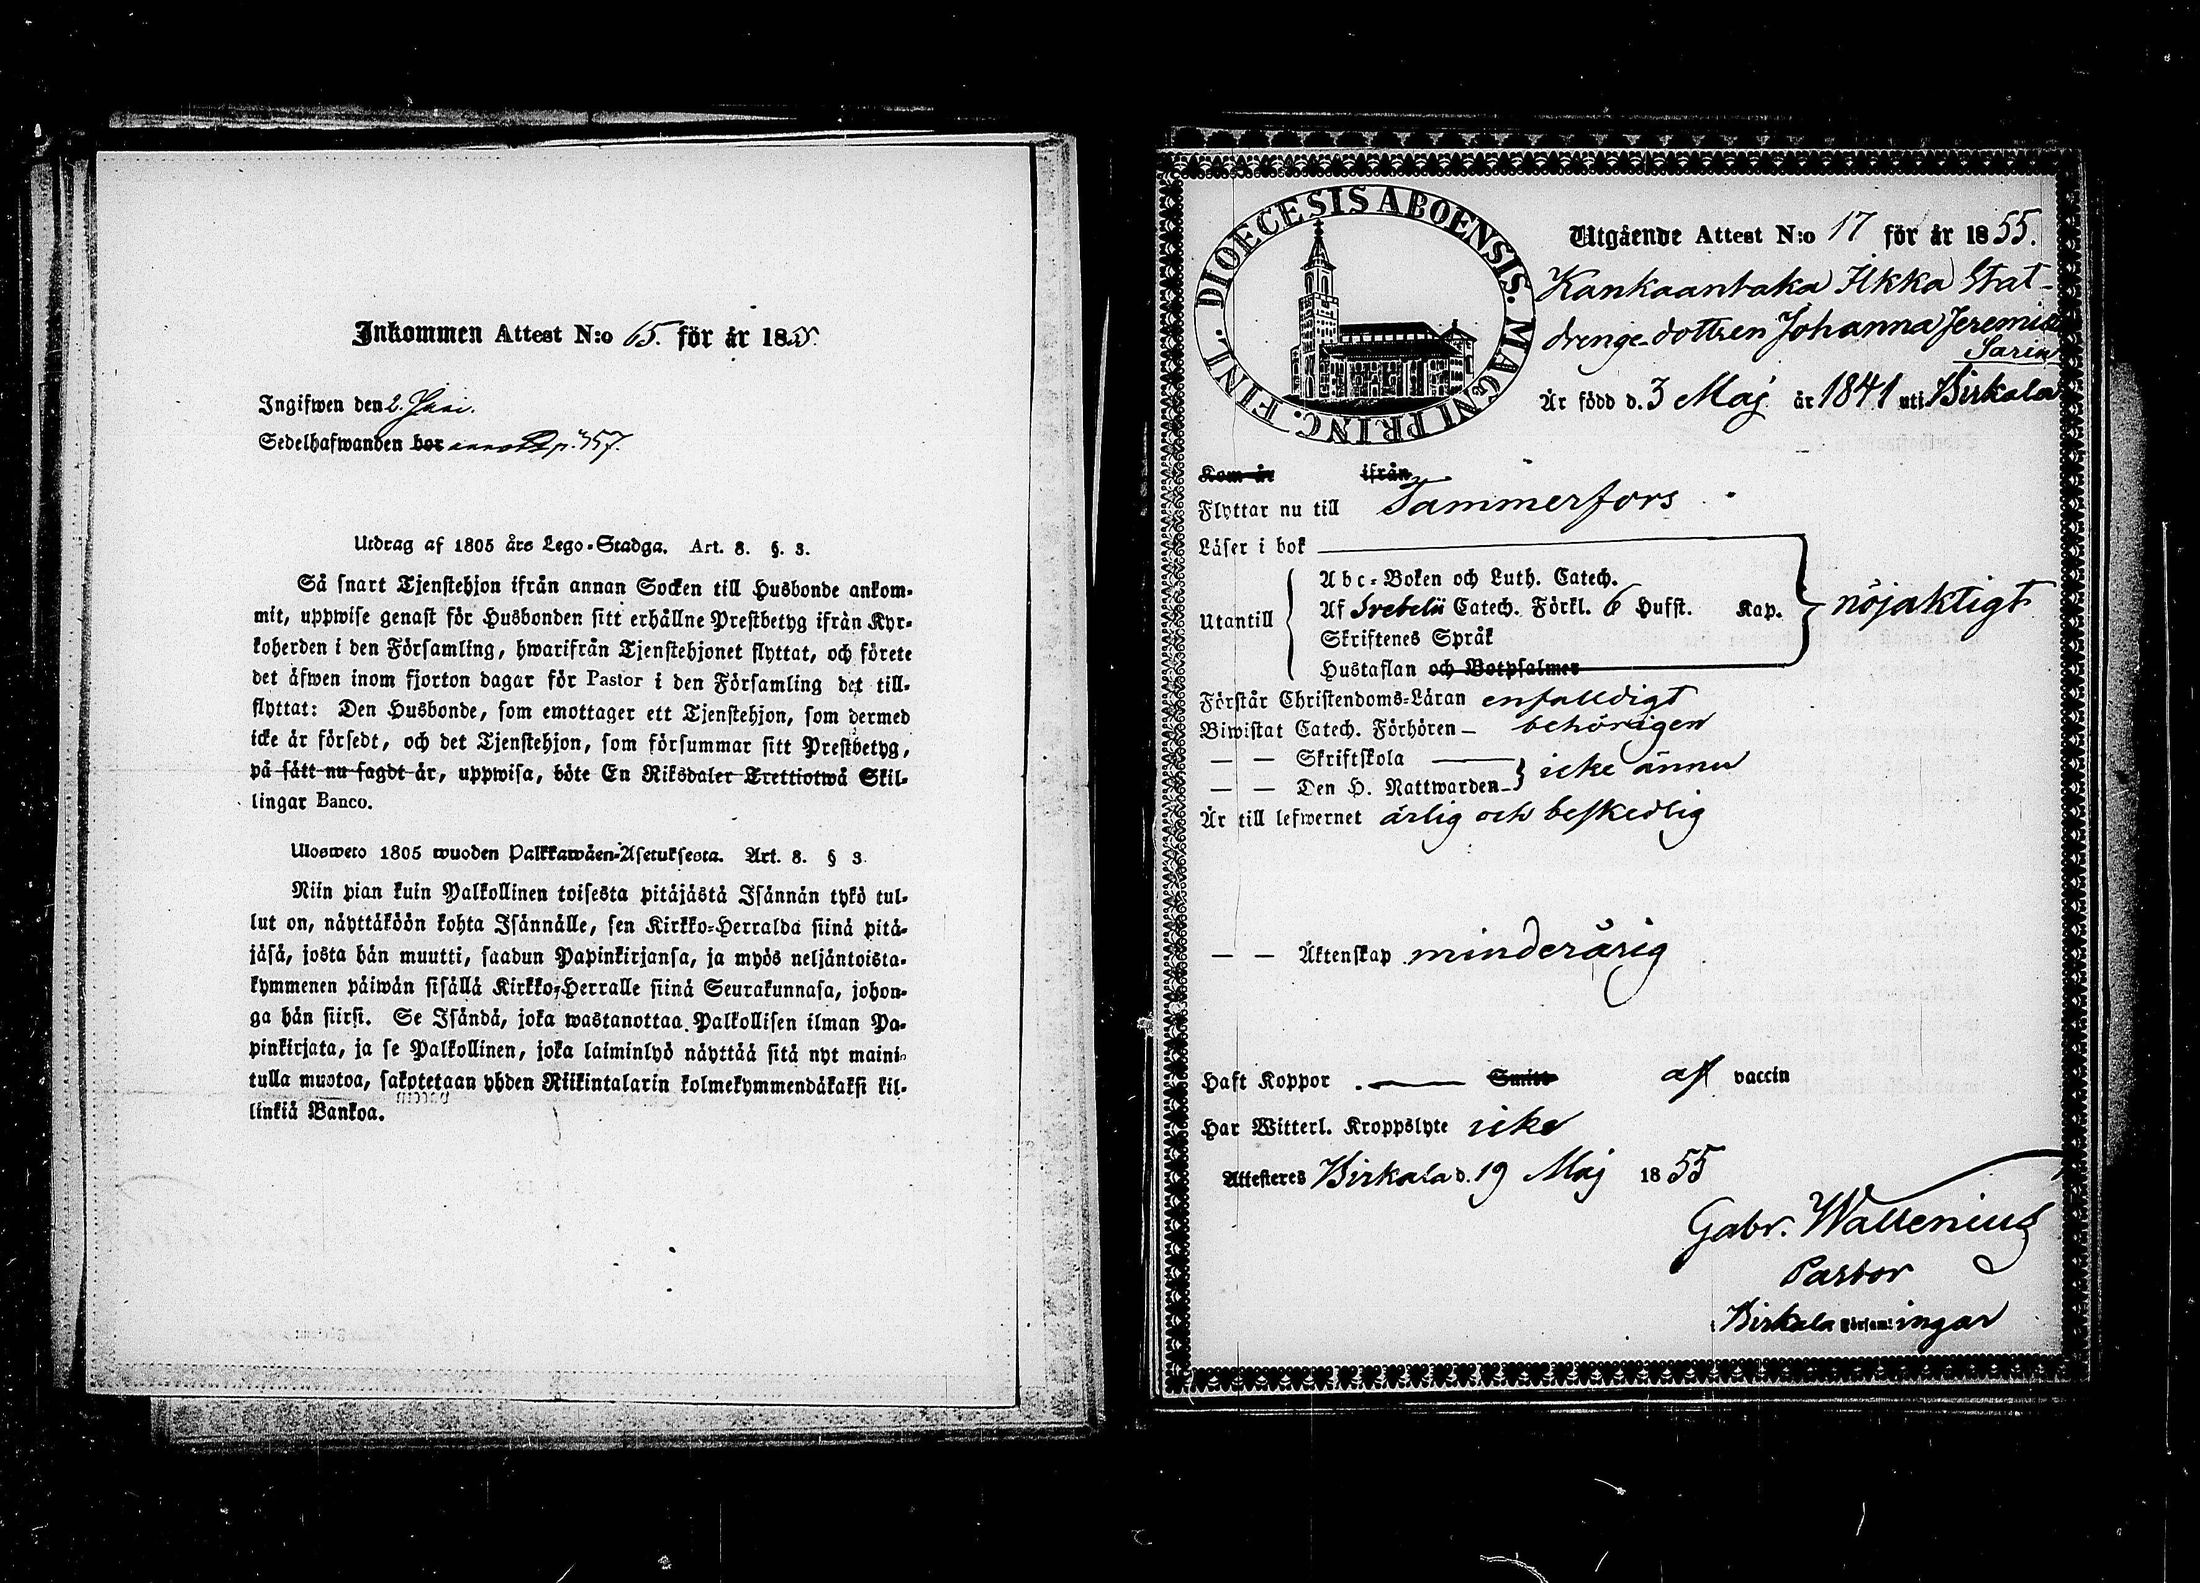 Inkommen Attest N:o 65. för år 1855.
Ingifwen den 2. Juni.
Sedelhafwanden bor p. 357.
Utdrag af 1805 års Lego-Stadga. Art. 8. §. 3.
Så snart Tjenstehjon ifrån annan Socken till Husbonde ankom-
mit, uppwise genast för Husbonden sitt erhållne Prestbetyg ifrån Kyr-
koherden i den Församling, hwarifrån Tjenstehjonet flyttat, och förete
det äfwen inom fjorton dagar för Pastor i den Församling det till-
flyttat: Den Husbonde, som emottager ett Tjenstehjon, som dermed
icke är försedt, och det Tjenstehjon, som försummar sitt Prestbetyg,
på sätt nu sagdt är, uppwisa, böte En Riksdaler Trettiotwå Skil-
lingar Banco.
Ulosweto 1805 wuoden Palkkawäen-Asetuksesta. Art. 8. § 3
Niin pian kuin Palkollinen toisesta pitäjästä Isännän tykö tul-
lut on, näyttäköön kohta Isännälle, sen Kirkko-Herralda siinä pitä-
jäsä, josta hän muutti, saadun Papinkirjansa, ja myös neljäntoista-
kymmenen päiwän sisällä Kirkko-Herralle siinä Seurakunnasa, johon-
ga hän siirsi. Se Isändä, joka wastanottaa Palkollisen ilman Pa-
pinkirjata, ja se Palkollinen, joka laiminlyö näyttää sitä nyt maini-
tulla muotoa, sakotetaan yhden Riikintalarin kolmekymmendäkaksi kil-
linkiä Bankoa.
DIOECESIS ABOENSIS. MAGNI PRINC. FINL.
Utgående Attest N:o 17 för år 1855.
Kankaantaka Ilkka Stat-
drenge-dottren Johanna Jeremia
Sarin
Är född d. 3 Maj år 1841 uti Birkala
Kom år ifrån
Flyttar nu till Tammerfors
Läser i bok
Utantill
Abc-Boken och Luth. Catech.
Af Svebelii Catech. Förkl. 6 Hufst. Kap.
Skriftenes Språk
Hustaflan och Botpsalmer
nöjaktigt
Förstår Christendoms-Läran enfalldigt
Biwistat Catech. Förhören – behörigen
— — Skriftskola
— — Den H. Nattwarden icke ännu
Är till lefwernet ärlig och beskedlig
— — Äktenskap minderårig
Haft Koppor Smitt af vaccin
Har Witterl. Kroppslyte icke
Attesteres Birkala d. 19 Maj 1855
Gabr. Wallenius
Pastor
Birkala Församlingar